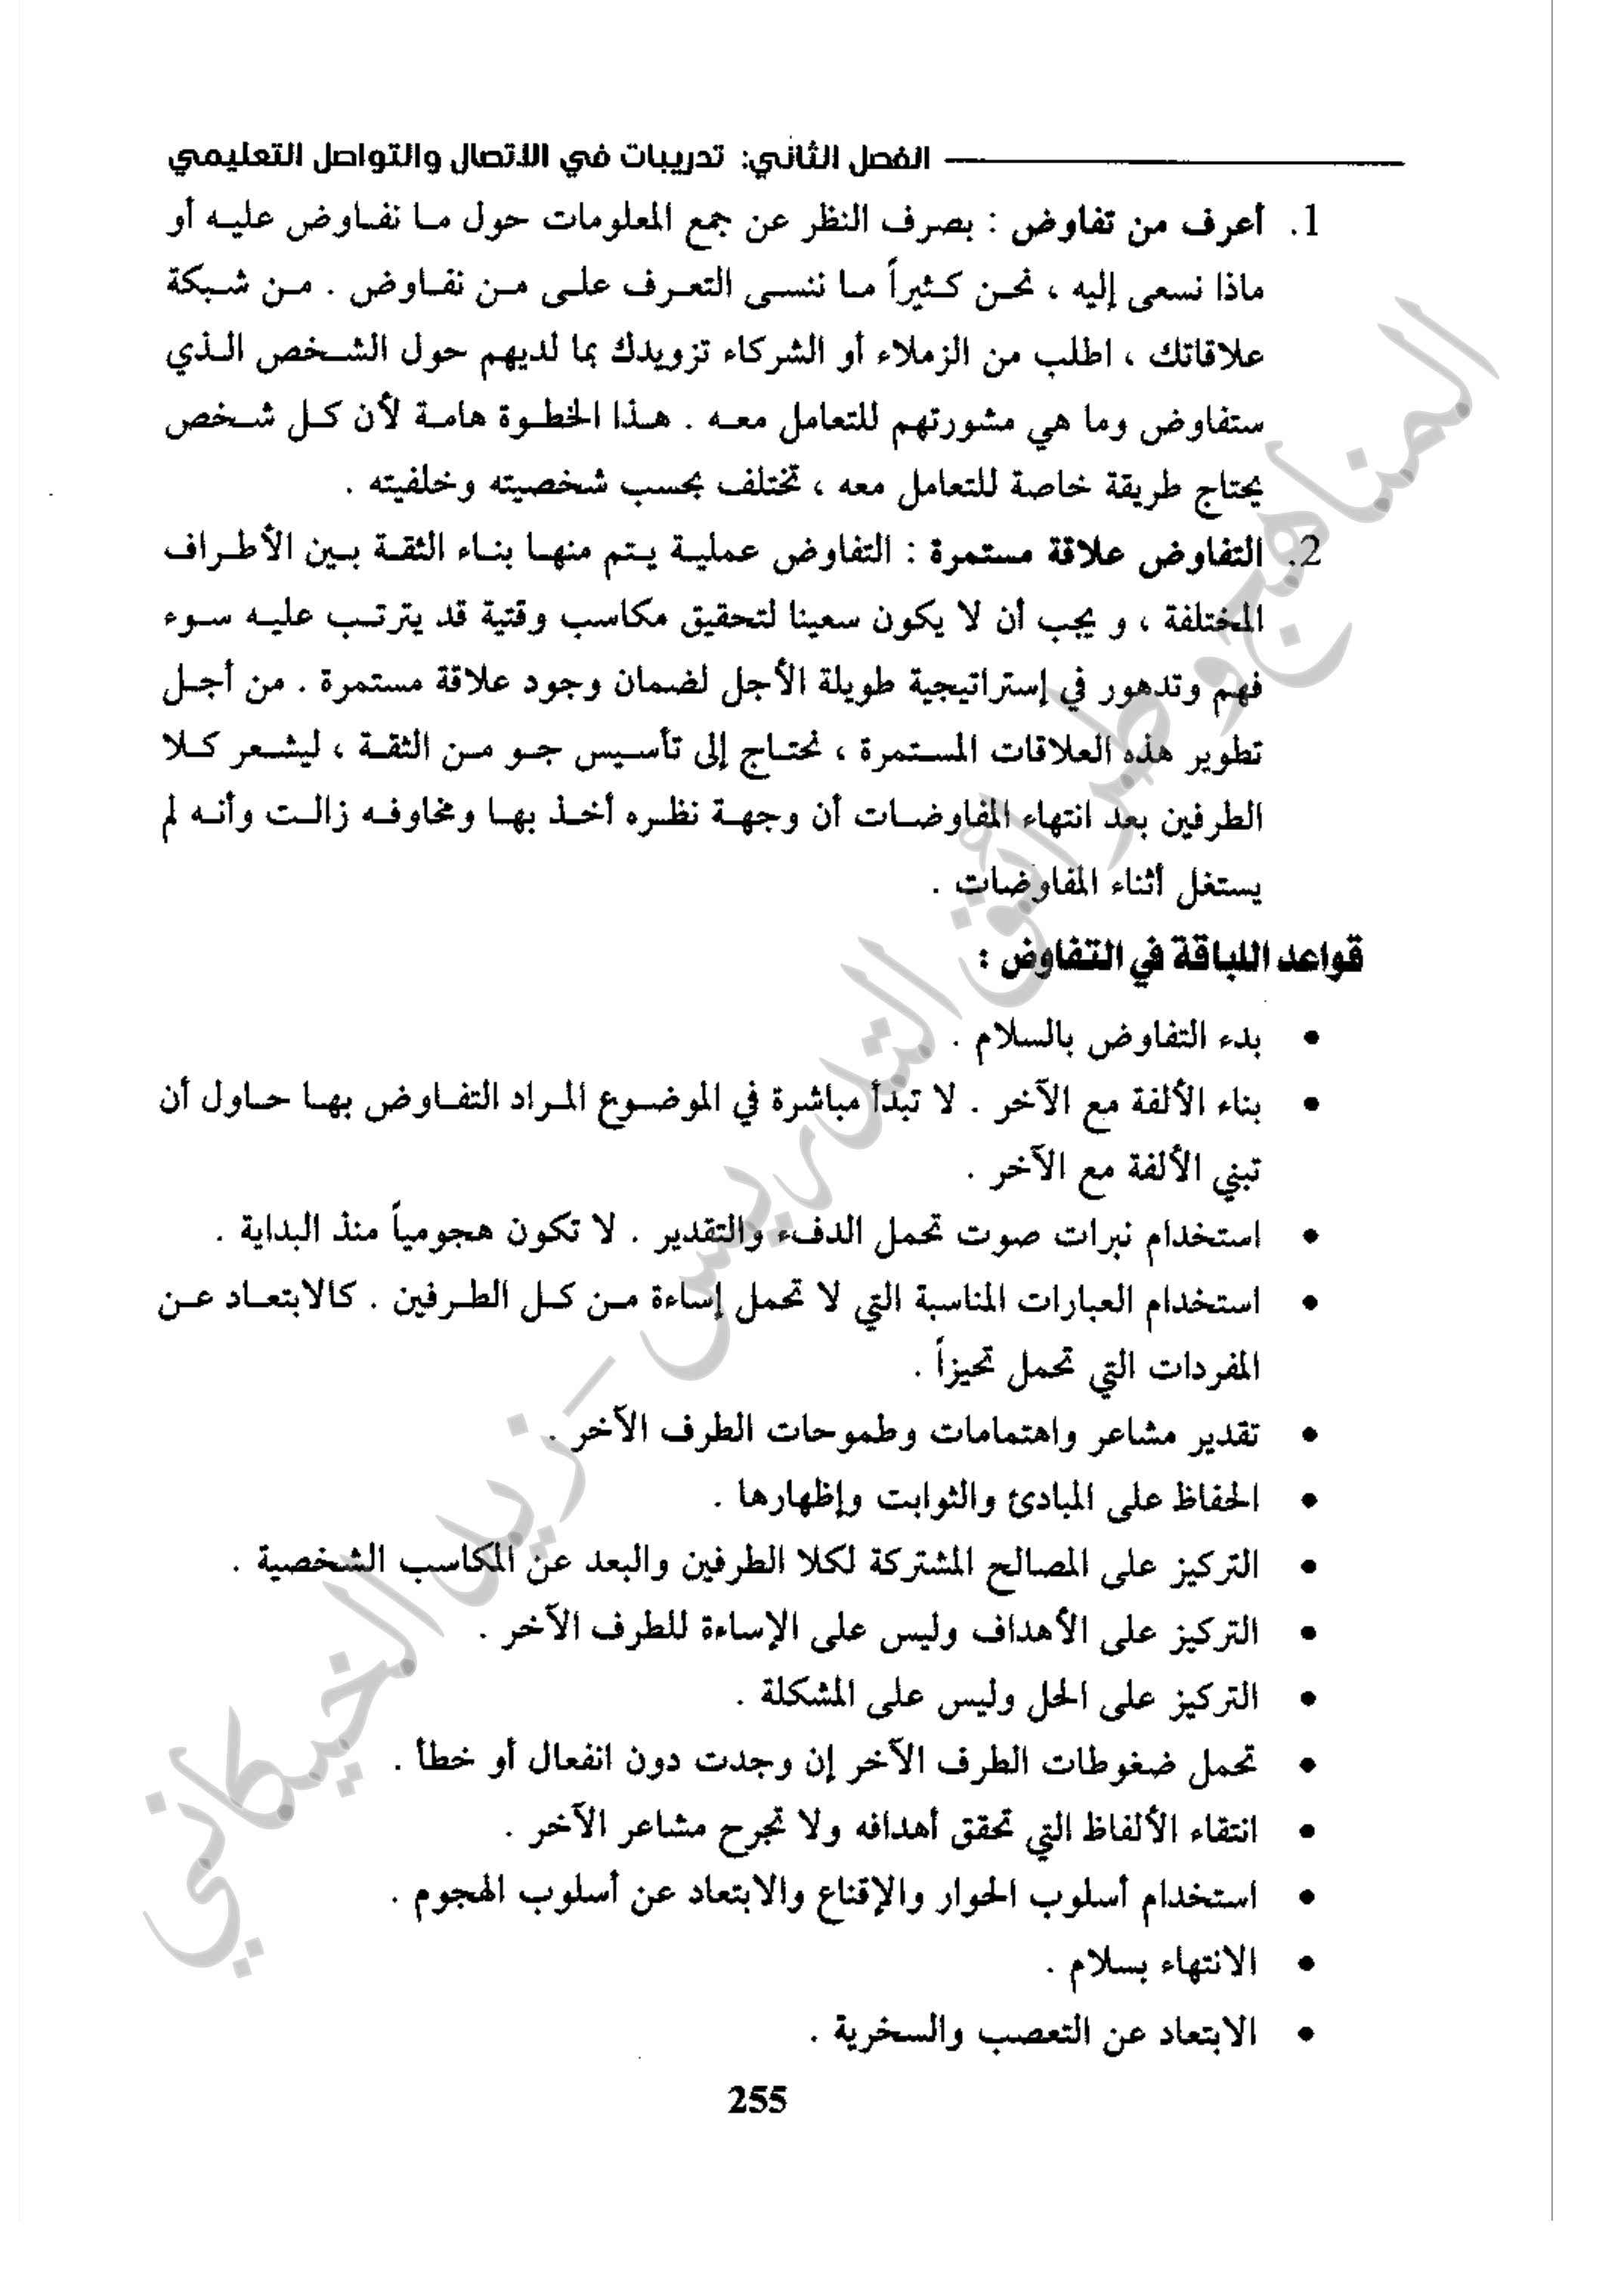 الفصل الثاني: تدريبات في الاتصال والتواصل التعليمي
1. أعرف من تفاوض : بصرف النظر عن جمع المعلومات حول ما نفاوض عليه أو
ماذا نسعى إليه ، نحن كثيراً ما ننسى التعرف على من نفاوض . من شبكة
علاقاتك ، اطلب من الزملاء أو الشركاء تزويدك بما لديهم حول الشخص الذي
ستفاوض وما هي مشورتهم للتعامل معه . هذا الخطوة هامة لأن كل شخص
يحتاج طريقة خاصة للتعامل معه ، تختلف بحسب شخصيته وخلفيته .
2. التفاوض علاقة مستمرة : التفاوض عملية يتم منها بناء الثقة بين الأطراف
المختلفة ، و يجب أن لا يكون سعينا لتحقيق مكاسب وقتية قد يترتب عليه سوء
فهم وتدهور في إستراتيجية طويلة الأجل لضمان وجود علاقة مستمرة . من أجل
تطوير هذه العلاقات المستمرة ، نحتاج إلى تأسيس جو من الثقة ، ليشعر كلا
الطرفين بعد انتهاء المفاوضات أن وجهة نظره أخذ بها ومخاوفه زالت وأنه لم
يستغل أثناء المفاوضات .
قواعد اللباقة في التفاوض :
• بدء التفاوض بالسلام .
• بناء الألفة مع الآخر . لا تبدأ مباشرة في الموضوع المراد التفاوض بها حاول أن
تبني الألفة مع الآخر .
• استخدام نبرات صوت تحمل الدفء والتقدير . لا تكون هجومياً منذ البداية .
• استخدام العبارات المناسبة التي لا تحمل إساءة من كل الطرفين . كالابتعاد عن
المفردات التي تحمل تحيزاً .
• تقدير مشاعر واهتمامات وطموحات الطرف الآخر .
• الحفاظ على المبادئ والثوابت وإظهارها .
• التركيز على المصالح المشتركة لكلا الطرفين والبعد عن المكاسب الشخصية .
• التركيز على الأهداف وليس على الإساءة للطرف الآخر .
• التركيز على الحل وليس على المشكلة .
• تحمل ضغوطات الطرف الآخر إن وجدت دون انفعال أو خطأ .
• انتقاء الألفاظ التي تحقق أهدافه ولا تجرح مشاعر الآخر .
• استخدام أسلوب الحوار والإقناع والابتعاد عن أسلوب الهجوم .
• الانتهاء بسلام .
• الابتعاد عن التعصب والسخرية .
255
المناهج وطرائق التدريس - زيد الخيكاني